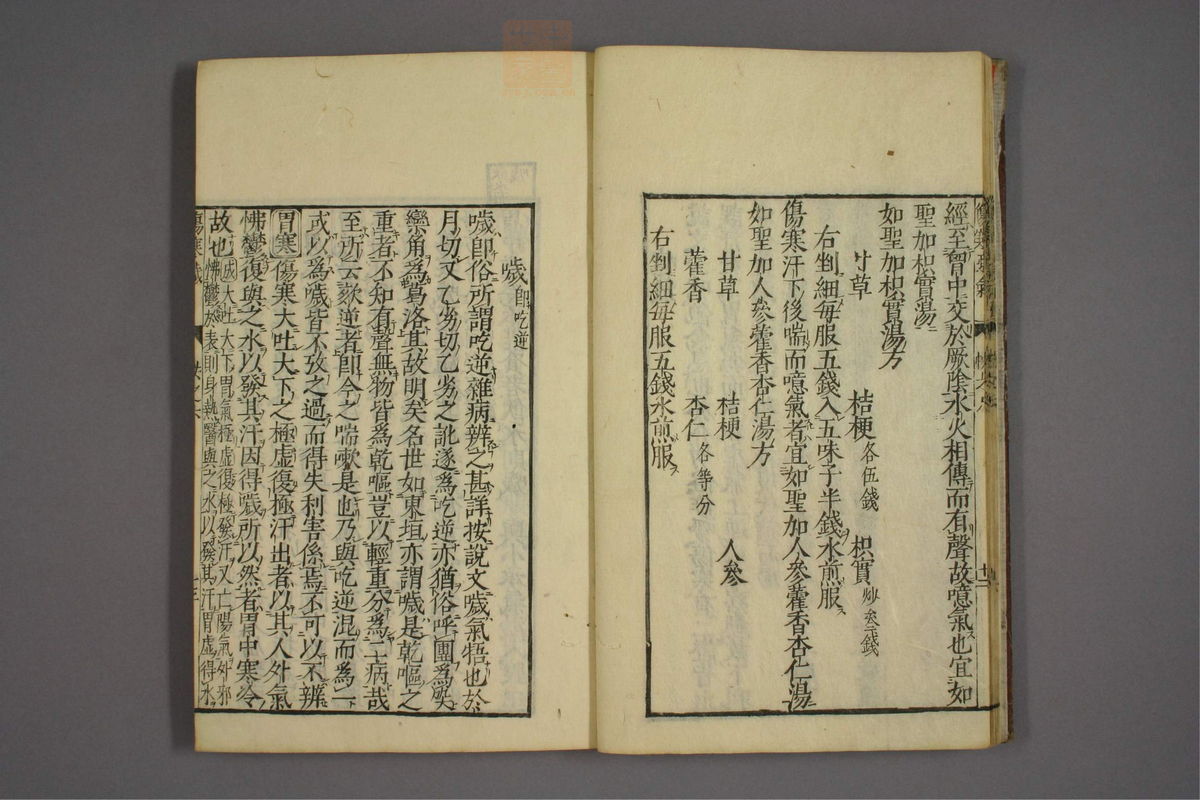 經至胷中交於厥陰水火相傳而有聲故噫氣也宜如
聖加枳實湯
如聖加枳實湯方
甘草 桔梗各伍錢 枳實炒叁錢
右剉細每服五錢入五味子半錢水煎服
傷寒汗下後喘而噫氣者宜如聖加人參藿香杏仁湯
如聖加人參藿香杏仁湯方
甘草 桔梗 人參
藿香 杏仁各等分
右剉細每服五錢水煎服
噦即吃逆
噦即俗所謂吃逆雜病辨之甚詳按說文噦氣啎也於
月切又乙劣切乙劣之訛遂爲吃逆亦猶俗呼團爲突
欒角爲葛洛其故明矣名世如東垣亦謂噦是乾嘔之
重者不知有聲無物皆爲乾嘔豈以輕重分爲二病哉
至所云欬逆者即今之喘嗽是也乃與吃逆混而爲一
或以爲噦皆不攷之過而得失利害係焉不可以不辨
胃寒 傷寒大吐大下之極虛復極汗出者以其人外氣
怫鬱復與之水以發其汗因得噦所以然者胃中寒冷
故也 大吐大下胃氣極虛復極發汗又亡陽氣外邪
怫鬱於表則身熱醫與之水以發其汗胃虛得水